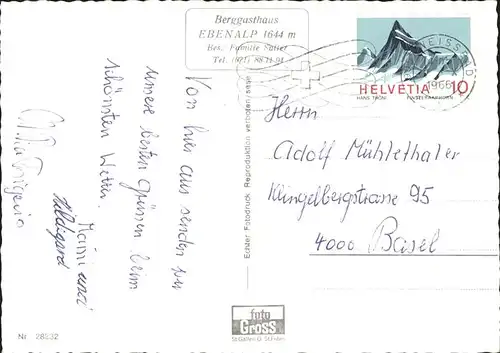 Berggasthaus
EBENALP 1644 m
Bes. Familie Sutter
Tel. (071) 88 11 94
HELVETIA 10
HANS THÖNI
FINSTERAARHORN
1966
Von hier aus senden wir
unsere besten Grüssen beim
schönsten Wetter.
Maini und
Hildigard
Echter Fotodruck Reproduktion verboten
Herrn
Adolf Mühlethaler
Klingelbergstrasse 95
4000 Basel
foto
GROSS
St. Gallen
Nr. 28532